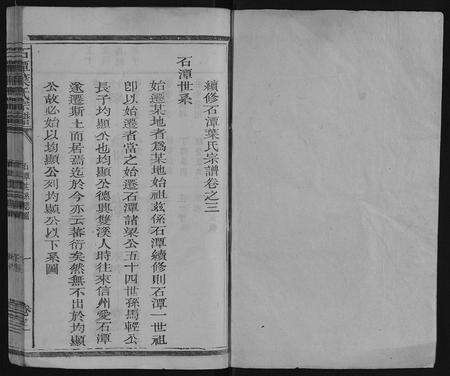 續修石潭葉氏宗譜卷之三
石潭世系
始遷某地者為某地始祖茲係石潭續修則石潭一世祖
卽以始遷者當之始遷石潭諸梁公五十四世孫馬輕公
長子均顯公也均顯公德興雙溪人時往來信州愛石潭
遂遷斯土而居焉迄於今亦云蕃衍矣然無不出於均顯
公故必始以均顯公列均顯公以下系圖